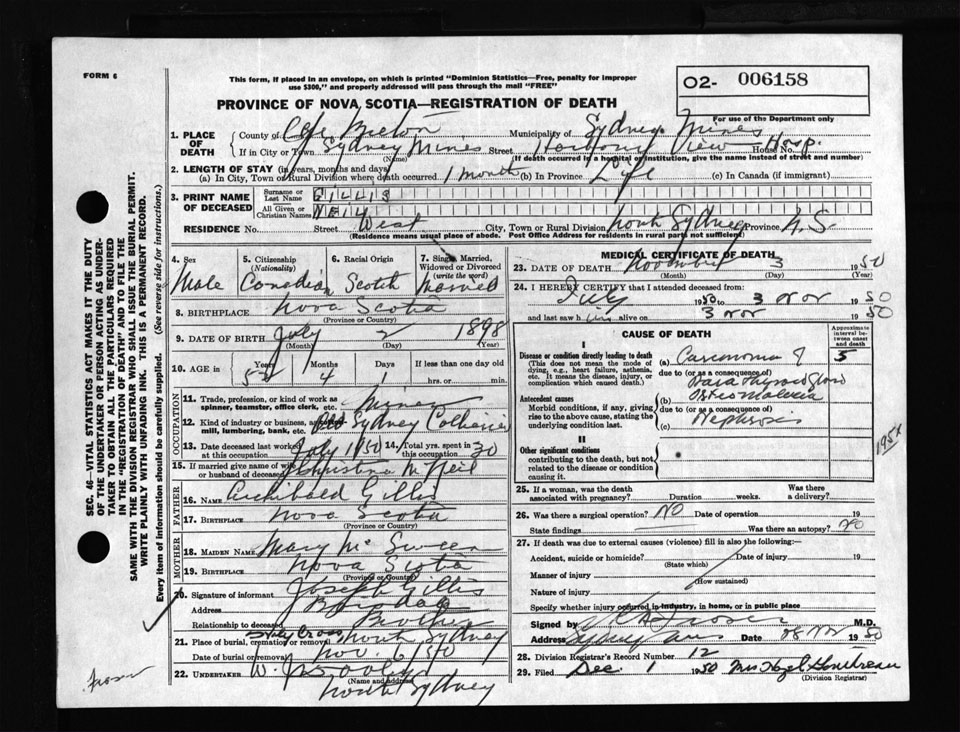 FORM 6
This form, if placed in an envelope, on which is printed "Dominion Statistics—Free, penalty for improper
use $300," and properly addressed will pass through the mail "FREE"
O2- 006158
For use of the Department only
PROVINCE OF NOVA SCOTIA—REGISTRATION OF DEATH
SEC. 46—VITAL STATISTICS ACT MAKES IT THE DUTY
OF THE UNDERTAKER OR PERSON ACTING AS UNDER-
TAKER TO OBTAIN ALL THE PARTICULARS REQUIRED
IN THE "REGISTRATION OF DEATH" AND TO FILE THE
SAME WITH THE DIVISION REGISTRAR WHO SHALL ISSUE THE BURIAL PERMIT.
WRITE PLAINLY WITH UNFADING INK. THIS IS A PERMANENT RECORD.
Every item of information should be carefully supplied. (See reverse side for instructions.)
1. PLACE OF DEATH County of Cape Breton Municipality of Sydney Mines
If in City or Town Sydney Mines Street Harbour View Hosp. House No.
(Name) (If death occurred in a hospital or institution, give the name instead of street and number)
2. LENGTH OF STAY (in years, months and days)
(a) In City, Town or Rural Division where death occurred 1 month (b) In Province Life (c) In Canada (if immigrant)
3. PRINT NAME OF DECEASED Surname or Last Name GILLIS
All Given or Christian Names NEIL
RESIDENCE No. Street West City, Town or Rural Division North Sydney Province N.S.
(Residence means usual place of abode. Post Office Address for residents in rural parts not sufficient)
4. Sex Male
5. Citizenship (Nationality) Canadian
6. Racial Origin Scotch
7. Single, Married, Widowed or Divorced (write the word) Married
8. BIRTHPLACE Nova Scotia
(Province or Country)
9. DATE OF BIRTH July 2 1898
(Month) (Day) (Year)
10. AGE in Years 52 Months 4 Days 1 If less than one day old
hrs. or min.
OCCUPATION
11. Trade, profession, or kind of work as
spinner, teamster, office clerk, etc. Miner
12. Kind of industry or business, as
mill, lumbering, bank, etc. Sydney Collieries
13. Date deceased last worked at this occupation July 1950 14. Total yrs. spent in this occupation 30
15. If married give name of wife or husband of deceased Christina McNeil
FATHER
16. NAME Archibald Gillis
17. BIRTHPLACE Nova Scotia
(Province or Country)
MOTHER
18. MAIDEN NAME Mary McSween
19. BIRTHPLACE Nova Scotia
(Province or Country)
20. Signature of informant Joseph Gillis
Address
Relationship to deceased Brother
21. Place of burial, cremation or removal Holy Cross North Sydney
Date of burial or removal Nov. 6/50
22. UNDERTAKER W. J. Dooley
(Name and address)
North Sydney
MEDICAL CERTIFICATE OF DEATH
23. DATE OF DEATH November 3 1950
(Month) (Day) (Year)
24. I HEREBY CERTIFY that I attended deceased from:
July 1950 to 3 Nov 1950
and last saw him alive on 3 Nov 1950
CAUSE OF DEATH
Approximate interval between onset and death
I
Disease or condition directly leading to death
(This does not mean the mode of
dying, e.g., heart failure, asthenia,
etc. It means the disease, injury, or
complication which caused death.)
(a) Carcinoma of 5
due to (or as a consequence of)
Para Thyroid Gland
Antecedent causes
Morbid conditions, if any, giving
rise to the above cause, stating the
underlying condition last.
(b) Osteomalacia
due to (or as a consequence of)
(c) Nephrosis
195x
II
Other significant conditions
contributing to the death, but not
related to the disease or condition
causing it.
25. If a woman, was the death associated with pregnancy? Duration weeks. Was there a delivery?
26. Was there a surgical operation? NO Date of operation 19
State findings Was there an autopsy? NO
27. If death was due to external causes (violence) fill in also the following:—
Accident, suicide or homicide? Date of injury 19
(State which)
Manner of injury
(How sustained)
Nature of injury
Specify whether injury occurred in industry, in home, or in public place
Signed by M.D.
Address Sydney Mines Date 08 Nov 1950
28. Division Registrar's Record Number 12
29. Filed Dec. 1 1950 Mrs Hazel
(Division Registrar)